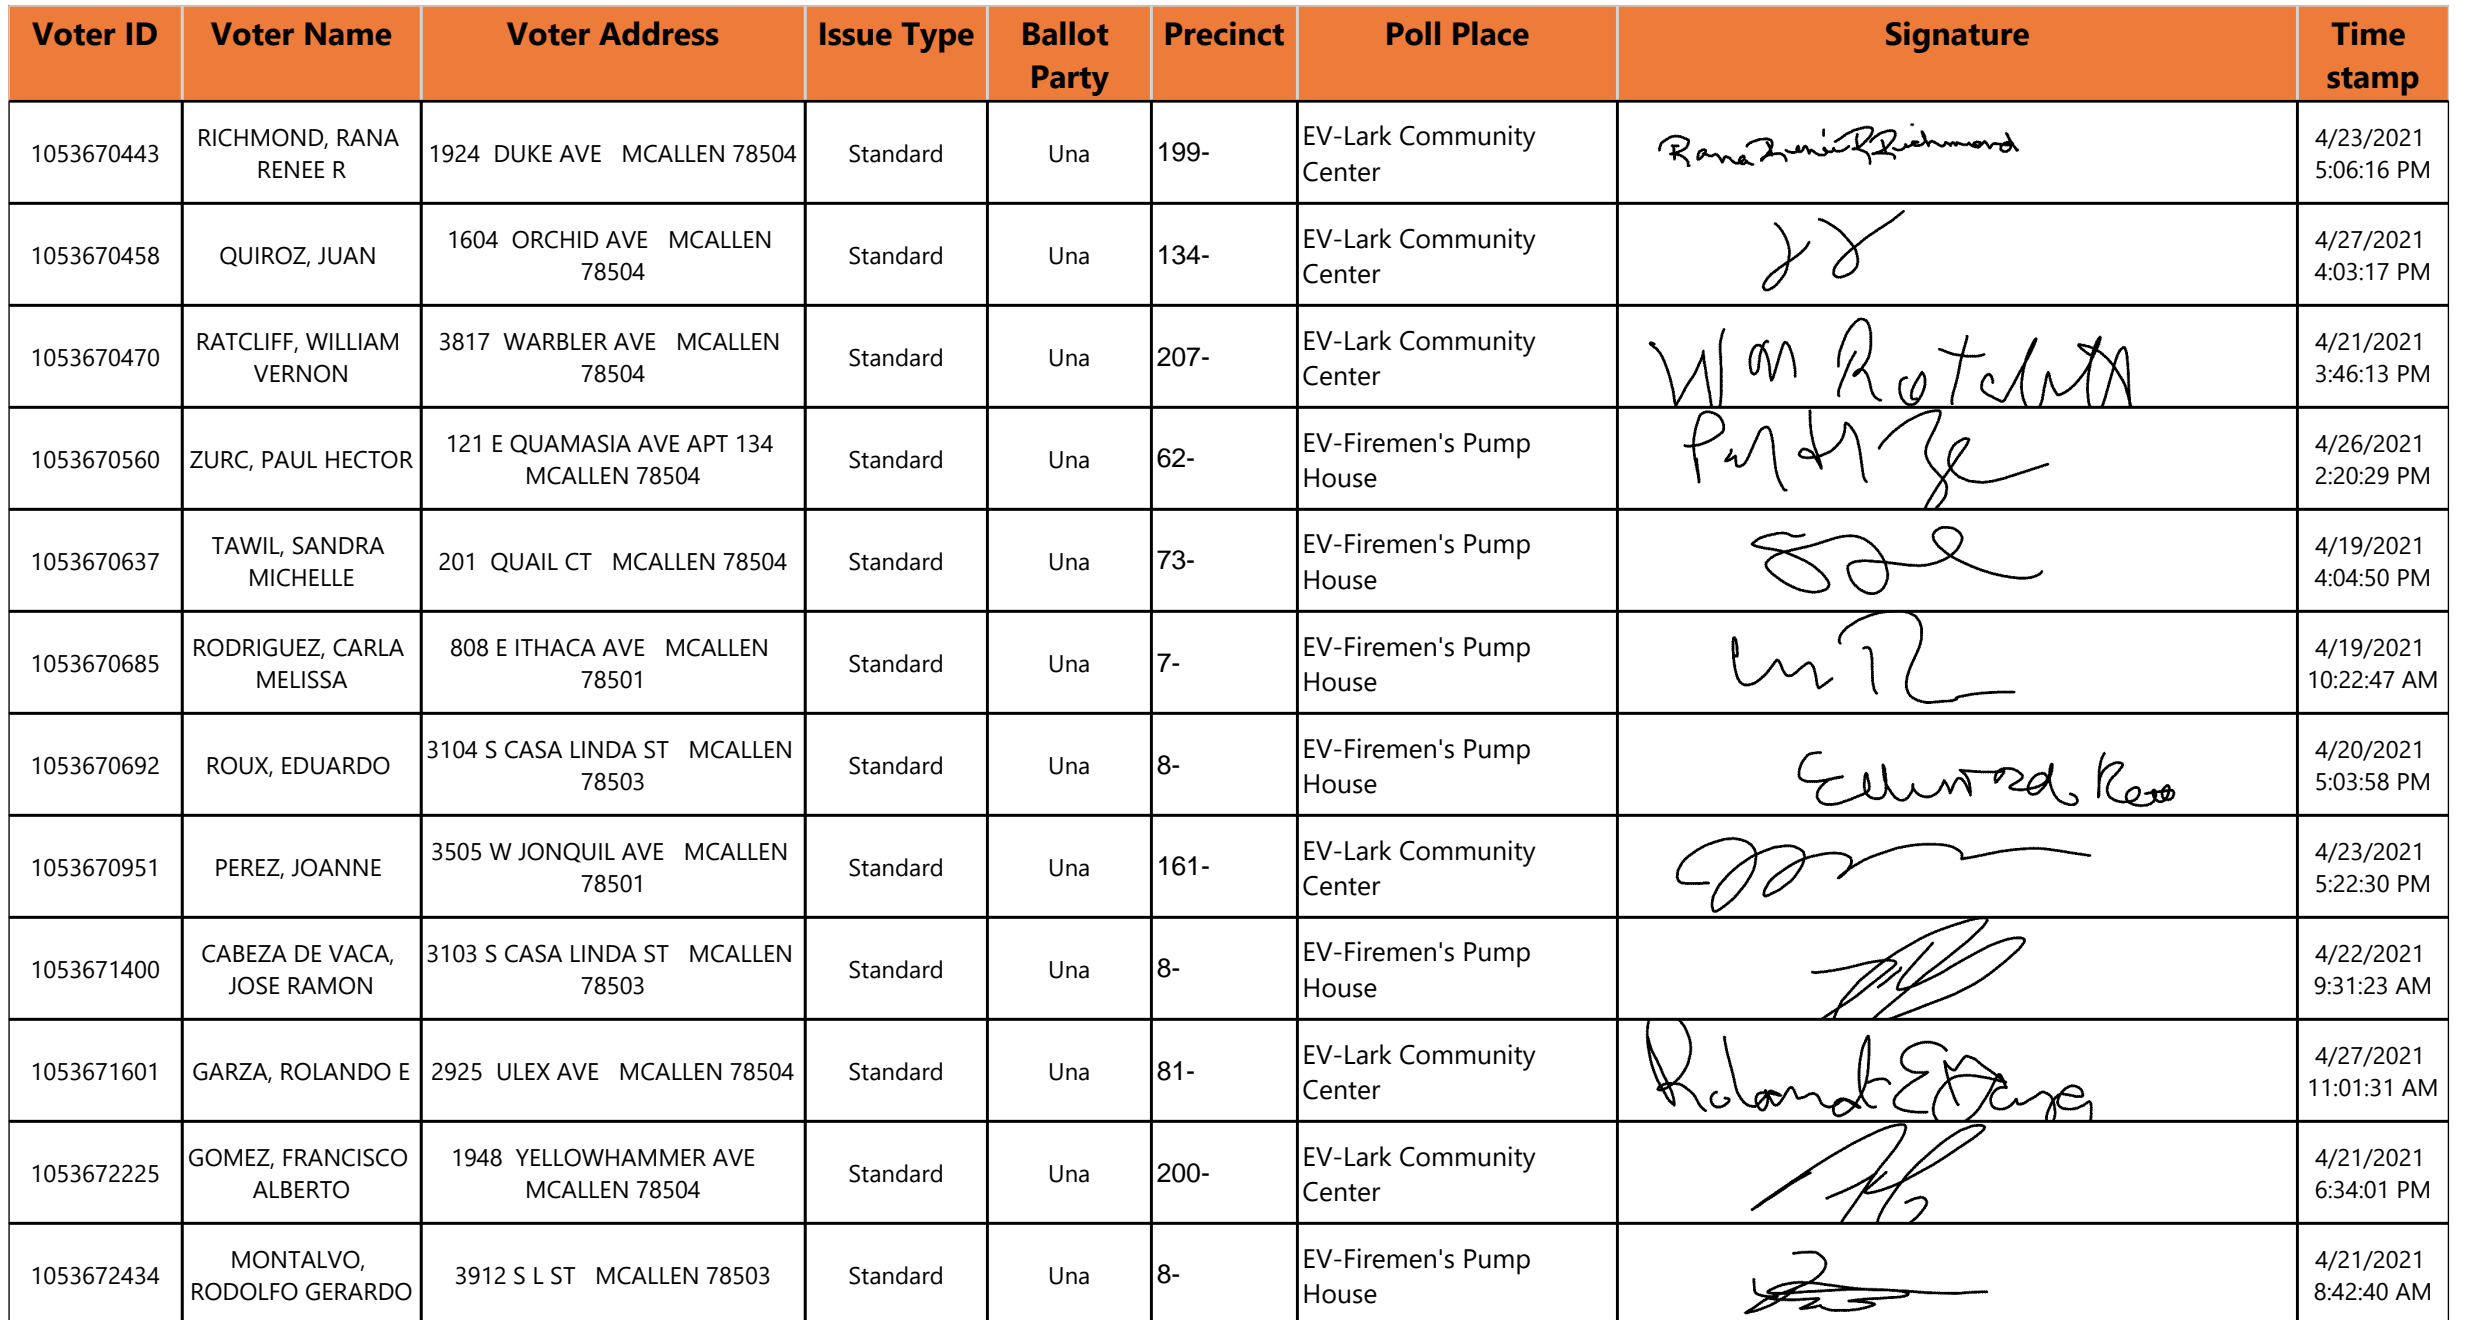 Voter ID Voter Name Voter Address Issue Type Ballot Party Precinct Poll Place Signature Time stamp
1053670443 RICHMOND, RANA RENEE R 1924 DUKE AVE MCALLEN 78504 Standard Una 199- EV-Lark Community Center Rana Renee R Richmond 4/23/2021 5:06:16 PM
1053670458 QUIROZ, JUAN 1604 ORCHID AVE MCALLEN 78504 Standard Una 134- EV-Lark Community Center 4/27/2021 4:03:17 PM
1053670470 RATCLIFF, WILLIAM VERNON 3817 WARBLER AVE MCALLEN 78504 Standard Una 207- EV-Lark Community Center Wm Ratcliff 4/21/2021 3:46:13 PM
1053670560 ZURC, PAUL HECTOR 121 E QUAMASIA AVE APT 134 MCALLEN 78504 Standard Una 62- EV-Firemen's Pump House 4/26/2021 2:20:29 PM
1053670637 TAWIL, SANDRA MICHELLE 201 QUAIL CT MCALLEN 78504 Standard Una 73- EV-Firemen's Pump House 4/19/2021 4:04:50 PM
1053670685 RODRIGUEZ, CARLA MELISSA 808 E ITHACA AVE MCALLEN 78501 Standard Una 7- EV-Firemen's Pump House 4/19/2021 10:22:47 AM
1053670692 ROUX, EDUARDO 3104 S CASA LINDA ST MCALLEN 78503 Standard Una 8- EV-Firemen's Pump House 4/20/2021 5:03:58 PM
1053670951 PEREZ, JOANNE 3505 W JONQUIL AVE MCALLEN 78501 Standard Una 161- EV-Lark Community Center 4/23/2021 5:22:30 PM
1053671400 CABEZA DE VACA, JOSE RAMON 3103 S CASA LINDA ST MCALLEN 78503 Standard Una 8- EV-Firemen's Pump House 4/22/2021 9:31:23 AM
1053671601 GARZA, ROLANDO E 2925 ULEX AVE MCALLEN 78504 Standard Una 81- EV-Lark Community Center Rolando E Garza 4/27/2021 11:01:31 AM
1053672225 GOMEZ, FRANCISCO ALBERTO 1948 YELLOWHAMMER AVE MCALLEN 78504 Standard Una 200- EV-Lark Community Center 4/21/2021 6:34:01 PM
1053672434 MONTALVO, RODOLFO GERARDO 3912 S L ST MCALLEN 78503 Standard Una 8- EV-Firemen's Pump House 4/21/2021 8:42:40 AM